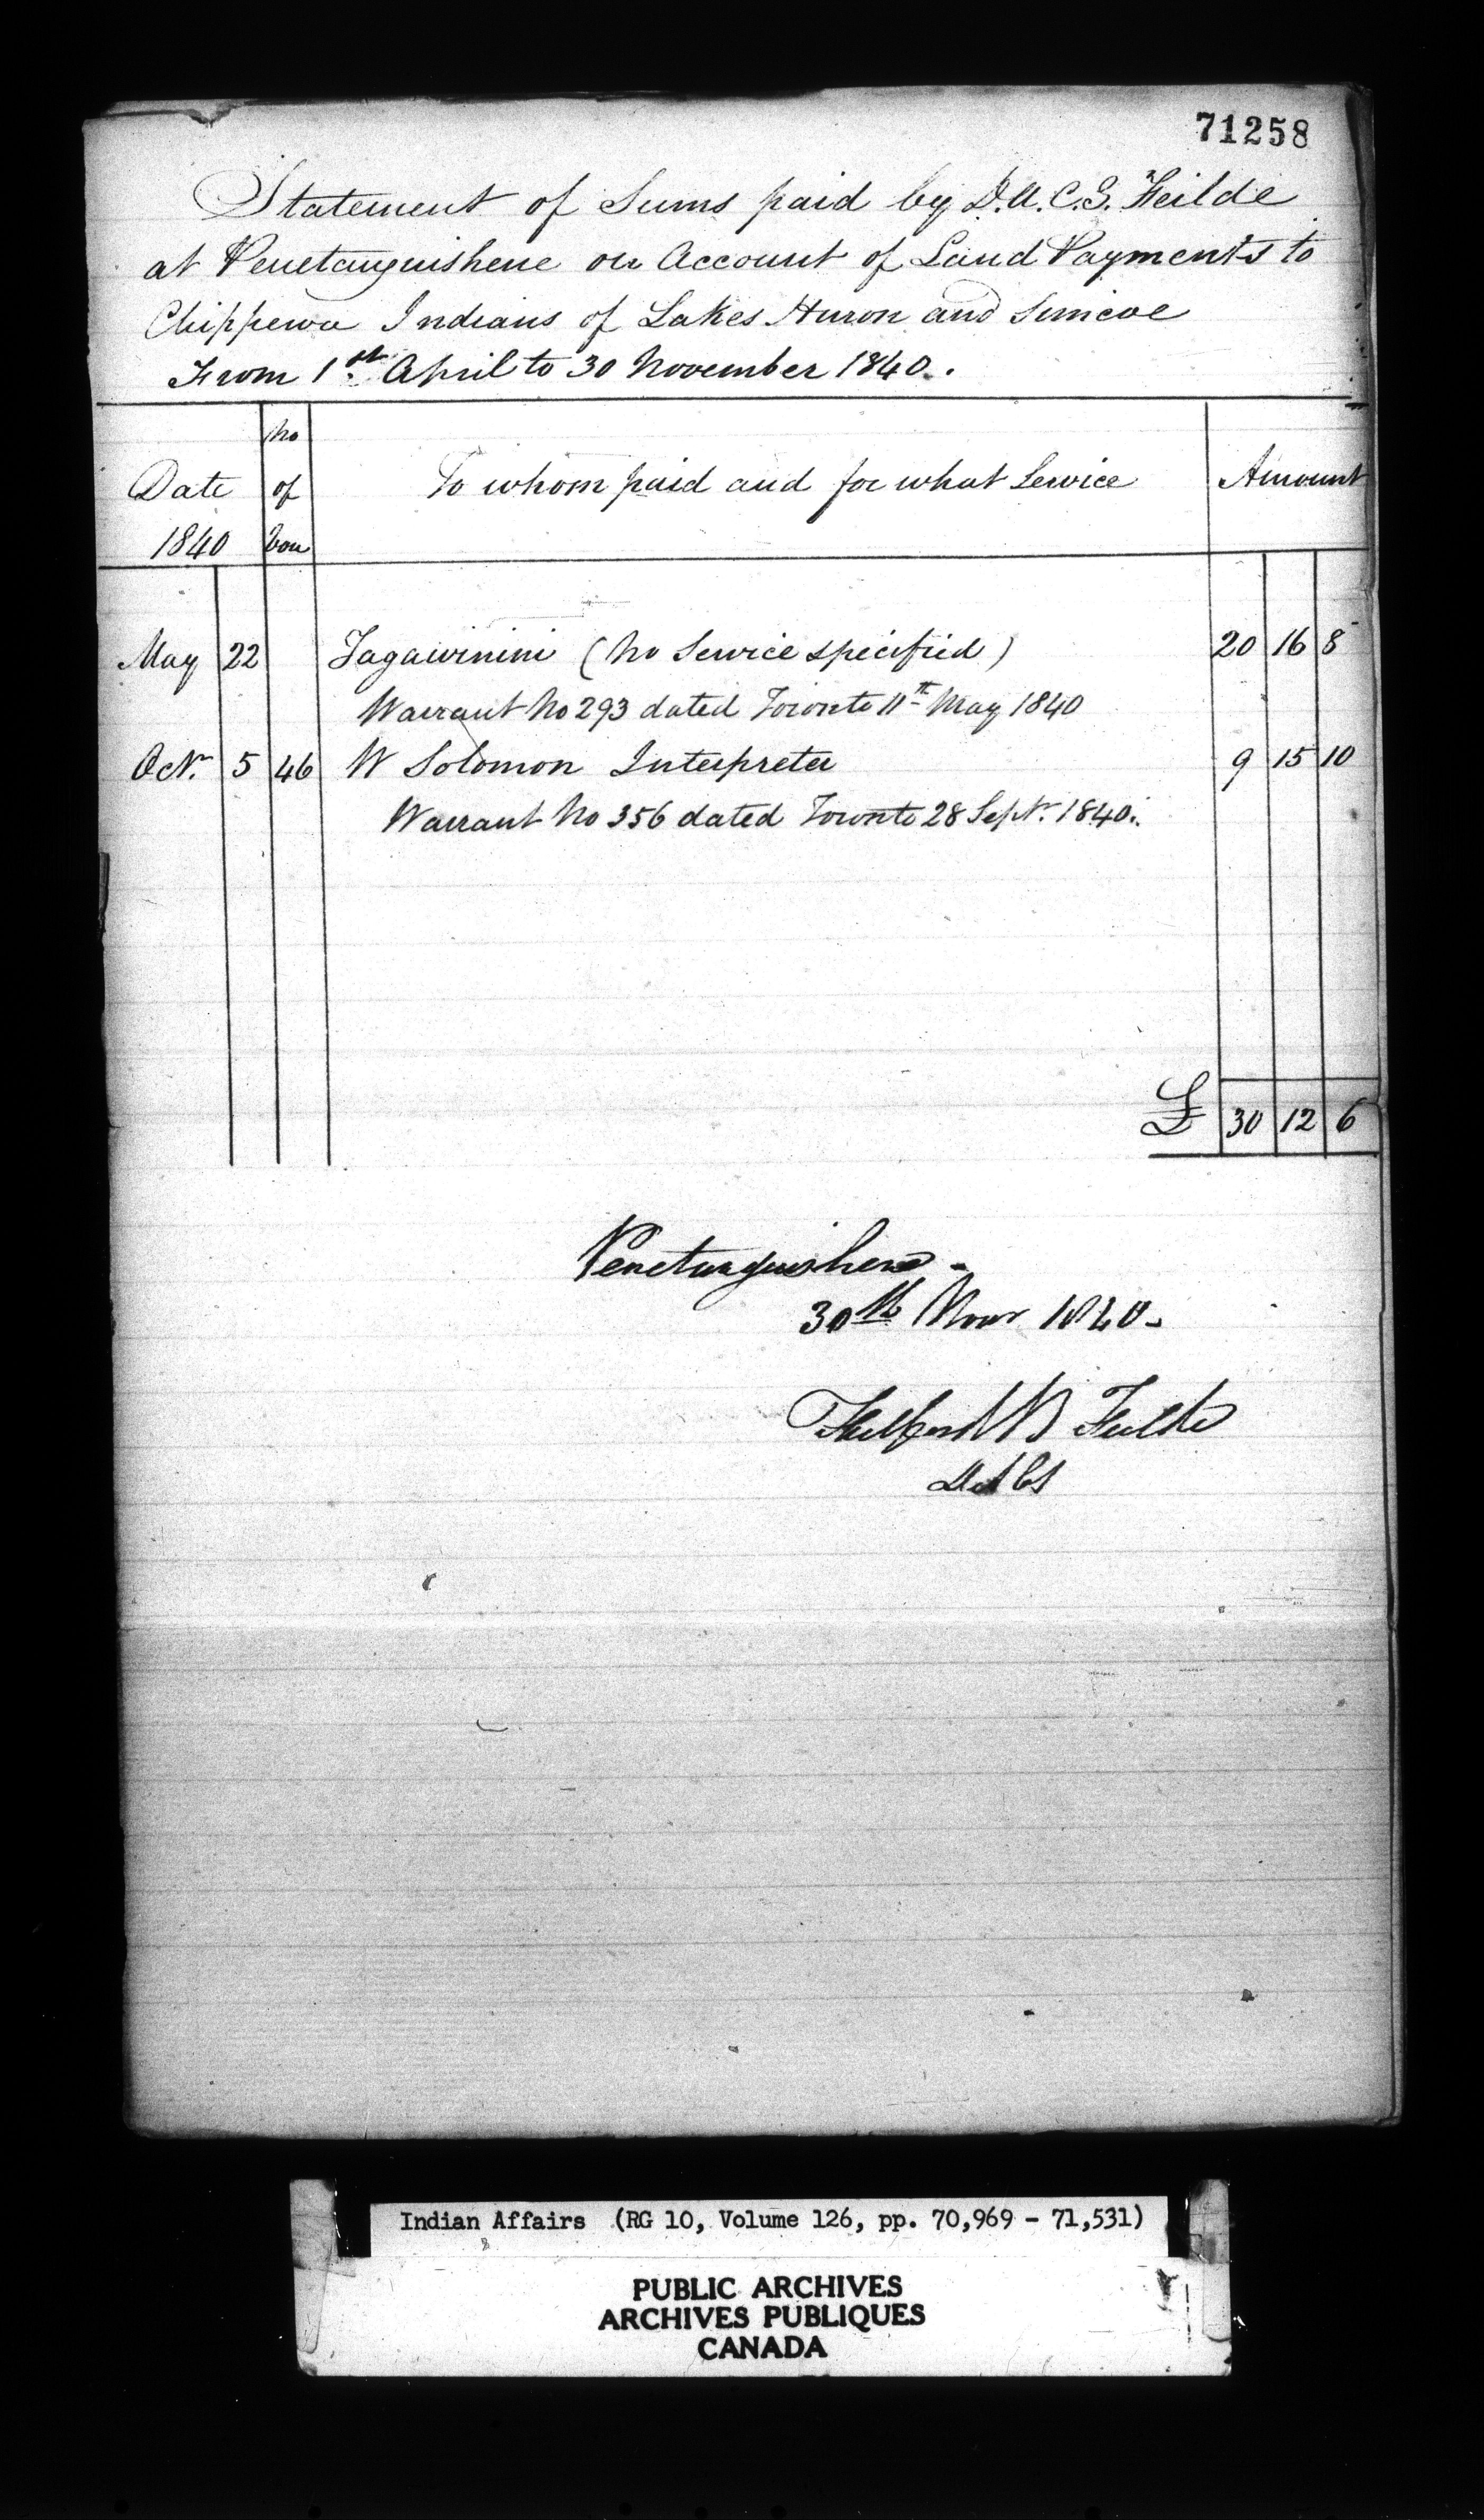 71258
Statement of Sums paid by D.A.C.G. Feilde
at Penetanguishene on Account of Land Payments to
Chippewa Indians of Lakes Huron and Simcoe
From 1st April to 30 November 1840.
No
Date of To whom paid and for what Service Amount
1840 Vou
May 22 Tagawinini (No Service specified) 20 16 8
Warrant No 293 dated Toronto 11th May 1840
Octr. 5 46 W Solomon Interpreter 9 15 10
Warrant No 356 dated Toronto 28 Septr. 1840.
£ 30 12 6
Penetanguishene -
30th Novr 1840-
Feilde
DACG
Indian Affairs (RG 10, Volume 126, pp. 70,969 - 71,531)
PUBLIC ARCHIVES
ARCHIVES PUBLIQUES
CANADA